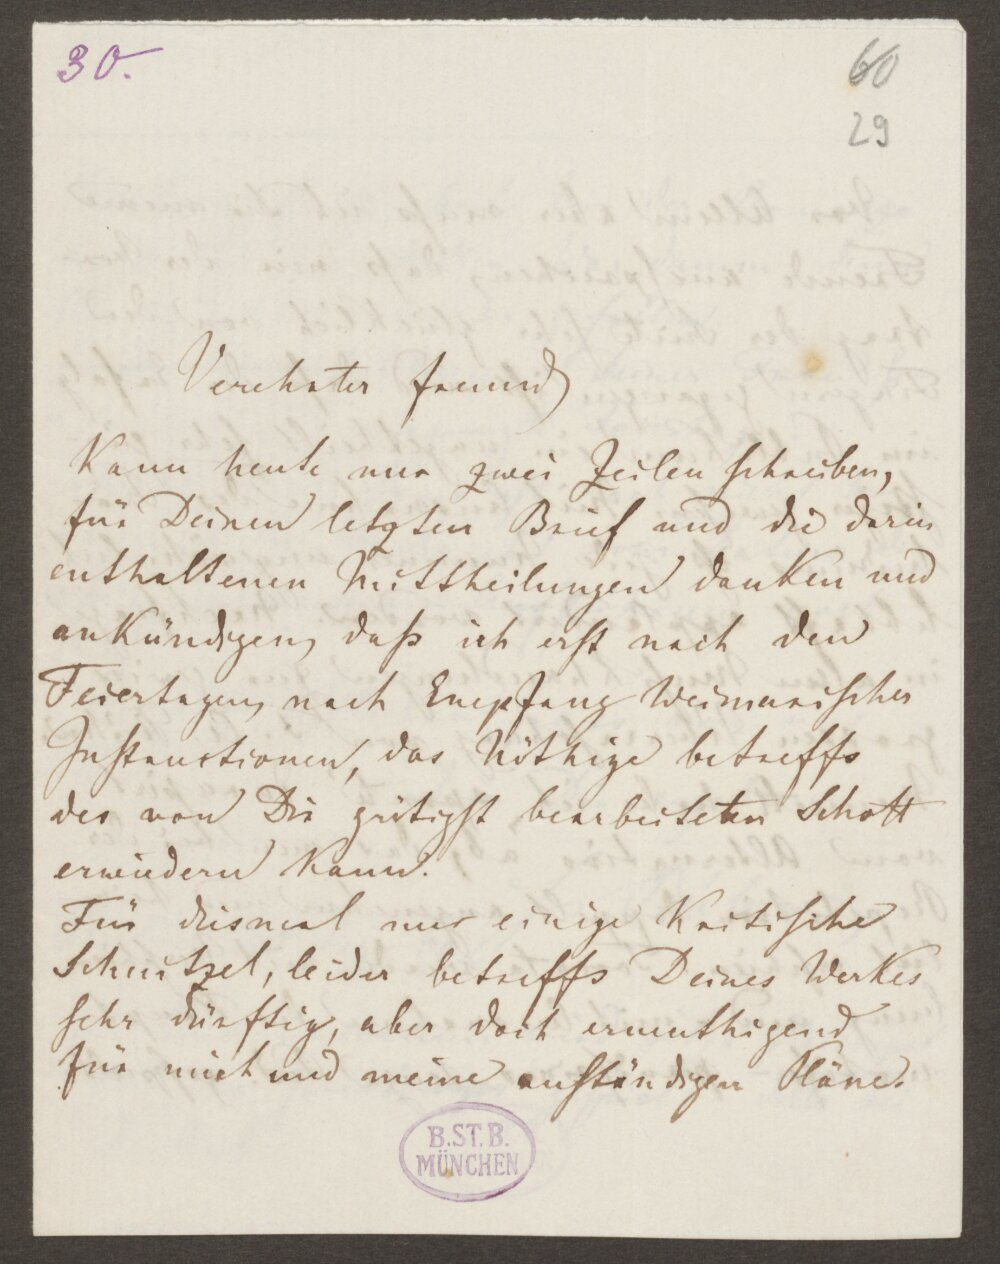 30.
60
29
Verehrter Freund
Kann heute nur zwei Zeilen schreiben,
für Deinen letzten Brief und die darin
enthaltenen Mittheilungen danken und
ankündigen, daß ich erst nach den
Feiertagen, nach Empfang Weimarischer
Instructionen, das Nöthige betreffs
des von Dir gütigst bearbeiteten Schott
erwiedern kann.
Für diesmal nur einige Kritische
Schnitzel, leider betreffs Deines Werkes
sehr dürftig, aber doch ermuthigend
für mich und meine anständigen Pläne.
B.ST.B.
MÜNCHEN